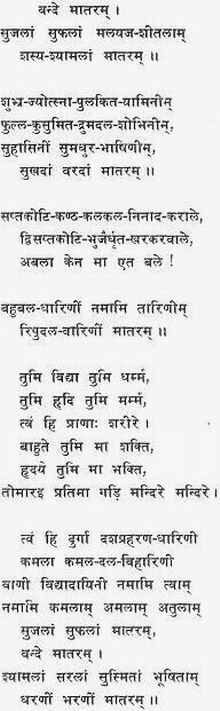 वन्दे मातरम् ।
सुजलां सुफलां मलयज-शीतलाम्
शस्य-श्यामलां मातरम् ॥
शुभ्र-ज्योत्स्ना-पुलकित-यामिनीम्
फुल्ल-कुसुमित-द्रुमदल-शोभिनीम्,
सुहासिनीं सुमधुर-भाषिणीम्,
सुखदां वरदां मातरम् ॥
सप्तकोटि-कण्ठ-कलकल-निनाद-कराले,
द्विसप्तकोटि-भुजैर्धृत-खरकरवाले,
अबला केन मा एत बले !
बहुबल-धारिणीं नमामि तारिणीम्
रिपुदल-वारिणीं मातरम् ॥
तुमि विद्या तुमि धर्म्म,
तुमि हृदि तुमि मर्म्म,
त्वं हि प्राणाः शरीरे ।
बाहुते तुमि मा शक्ति,
हृदये तुमि मा भक्ति,
तोमारइ प्रतिमा गड़ि मन्दिरे मन्दिरे ।
त्वं हि दुर्गा दशप्रहरण-धारिणी
कमला कमल-दल-विहारिणी
वाणी विद्यादायिनी नमामि त्वाम्
नमामि कमलाम् अमलाम् अतुलाम्
सुजलां सुफलां मातरम्,
वन्दे मातरम् ।
श्यामलां सरलां सुस्मितां भूषिताम्
धरणीं भरणीं मातरम् ॥